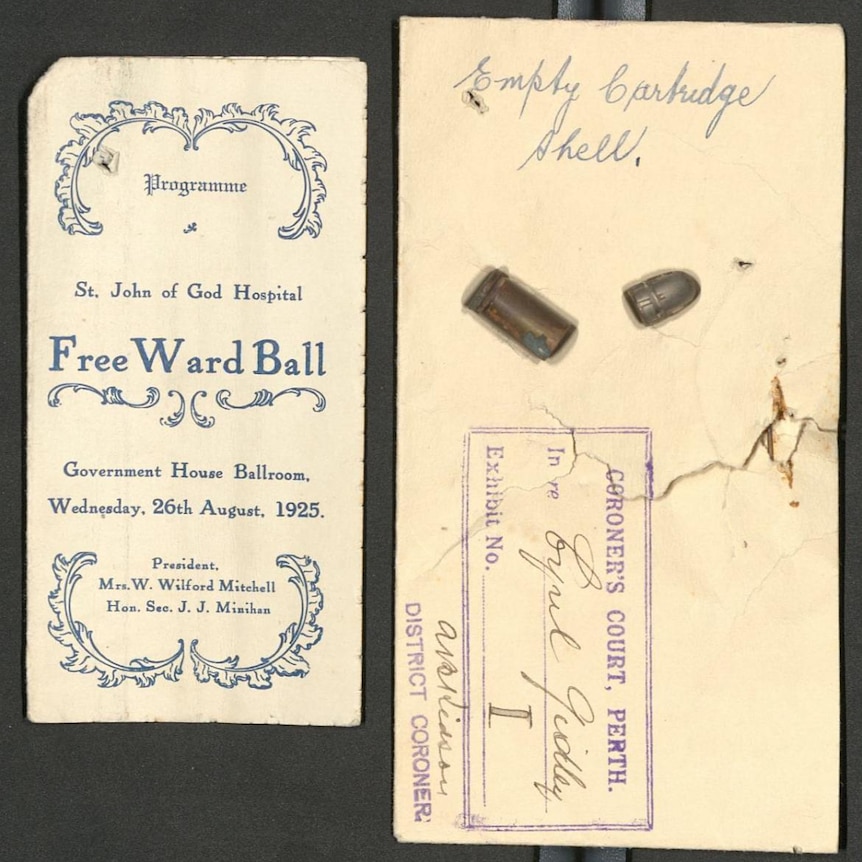 Programme
St. John of God Hospital
Free Ward Ball
Government House Ballroom,
Wednesday, 26th August, 1925.
President,
Mrs. W. Wilford Mitchell
Hon. Sec. J. J. Minihan
Empty Cartridge
Shell.
CORONER'S COURT, PERTH.
In re Cyril Gidley
Exhibit No. I
DISTRICT CORONER.